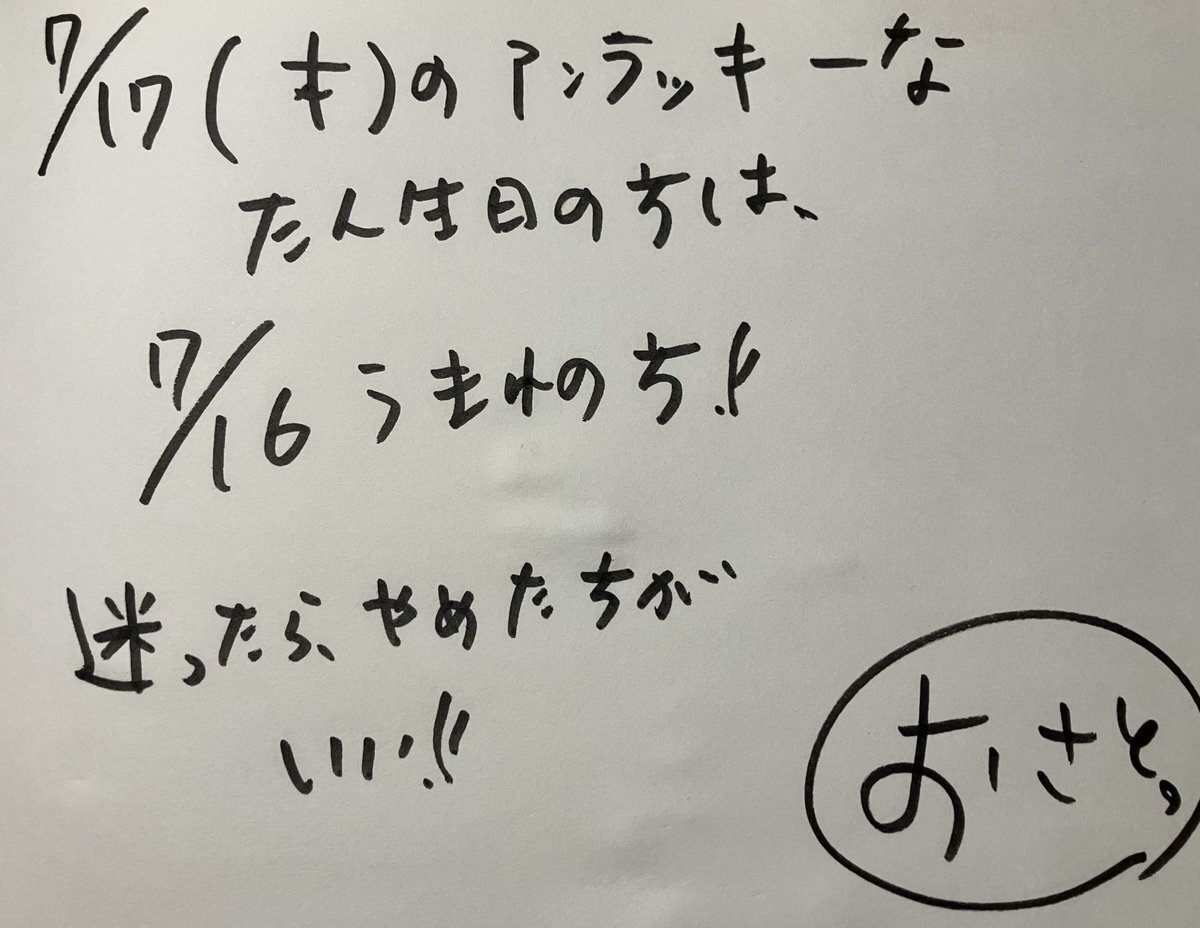 7/17(木)のアンラッキーな
たん生日の方は、
7/16うまれの方!!
迷ったら、やめた方が
いい!!
おさと。